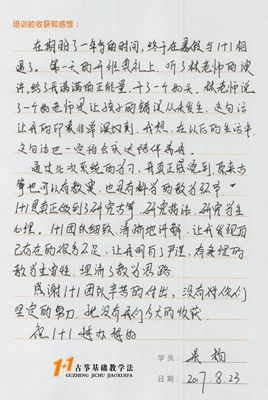 培训的收获和感想：
在相盼了一年多的时间，终于在暑假与1+1相
遇了。第一天的开班典礼上，听了林老师的演
讲，给了我满满的正能量，
一个好老师是让孩子的错误从未发生，这句话
让我的印象非常深刻，我想，在以后的生活中，
这句话也一定
通过此次系统的学习，我真正感觉到原来古
筝也可以有教案，也是有科学的教学环节。
1+1是真正做到了研究古筝，研究技法，研究学生
心理。1+1团队细致、清晰地讲解，让我发现自
己存在的很多不足，让我明白了严谨、有条理的
教学重要性，理清了教学思路。
感谢1+1团队辛苦的付出，没有你们
坚定的努力，就没有我们今天的收获。
祝1+1越办越好
1+1古筝基础教学法
GUZHENG JICHU JIAOXUEFA
学员：
日期：2017.8.23